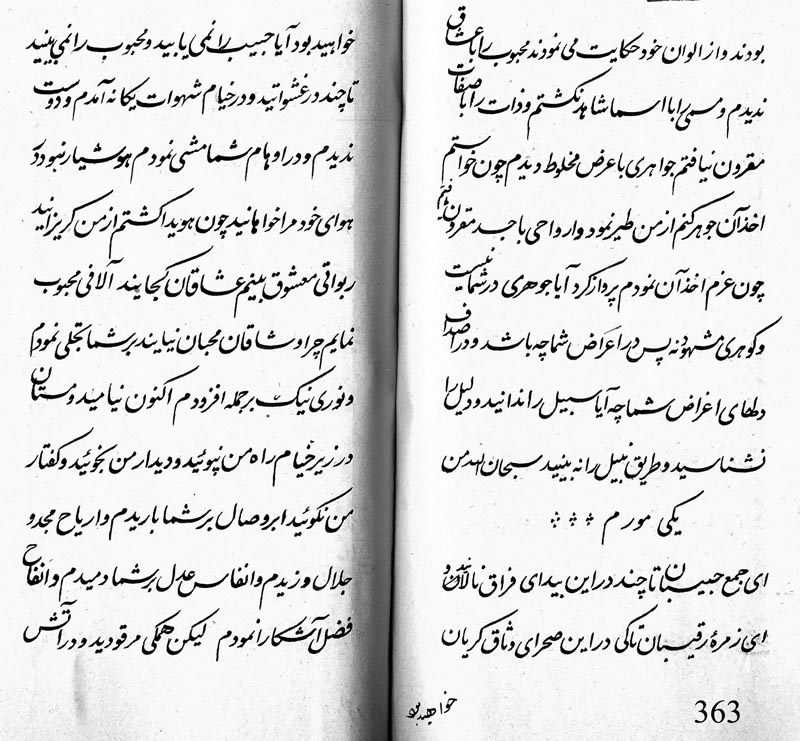 بودند و از الوان خود حکایت می نمودند محبوب را با عشاق
ندیدم و مسمی را با اسما شاهد نکشتم و ذات را با صفات
مقرون نیافتم جواهری با عرض مخلوط دیدم چون خواستم
اخذ آن جوهر کنم از من طیر نمود و ارواحی با جسد مقرون یافتم
چون عزم اخذ آن نمودم پرواز کرد آیا جوهری در شما نیست
و کوهری مشهود نه پس در اعراض شما چه باشد و در اصداف
دلهای اغراض شما چه آیا سبیل را ندانید و دلیل را
نشناسید و طریق نبیل را نه بینید سبحان الله من
یکی مورم
ای جمع حبیبان تا چند در این بیدای فراق نالانید و
ای زمرهٔ رقیبان تاکی در این صحرای وثاق کریان
خواهید بود
363
خواهید بود آیا حبیب را نمی یابید و محبوب را نمی بینید
تا چند در غشواتید و در خیام شهوات یکانه آمدم و دوست
ندیدم و در اوهام شما مشی نمودم هوشیار نبود در
هوای خود مرا خواهانید چون هویدا کشتم از من کریزانید
ربواتی معشوق بینم عاشقان کجایند آلافی محبوب
نمایم چرا وشاقان محبان نیایند بر شما تجلی نمودم
و نوری نیک بر جمله افزودم اکنون نیامید و مستان
در زیر خیام راه من نپوئید و دیدار من نجوئید و کفتار
من نکوئید ابر وصال بر شما باریدم و اریاح مجد و
جلال وزیدم و انفاس عدل بر شما دمیدم و انفاح
فضل آشکارا نمودم لیکن همکی مرقودید و در آتش